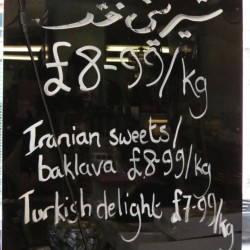 شیرینی تر
£8-99/kg
Iranian sweets/
baklava £8-99/kg
Turkish delight £7-99/kg